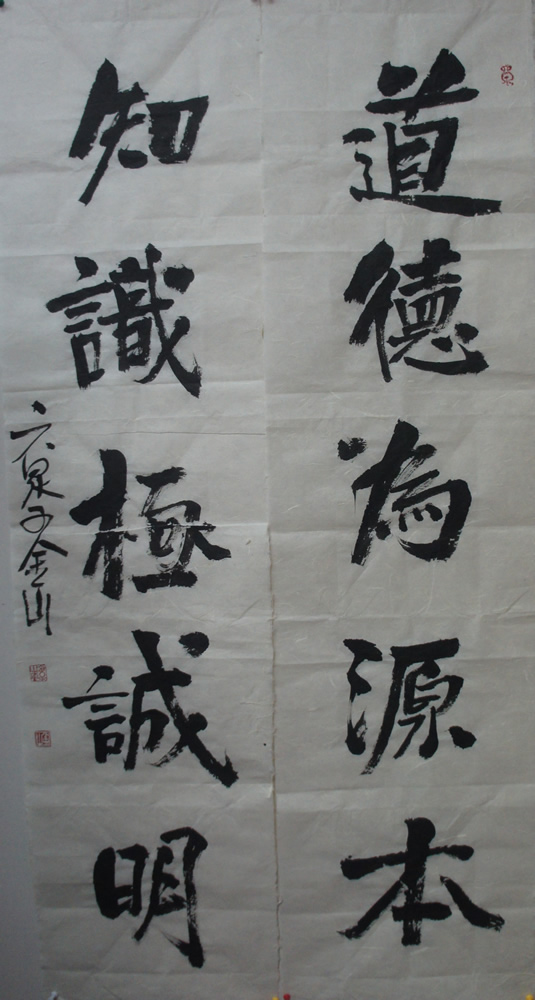 道德為源本
知識極誠明
六泉子金山